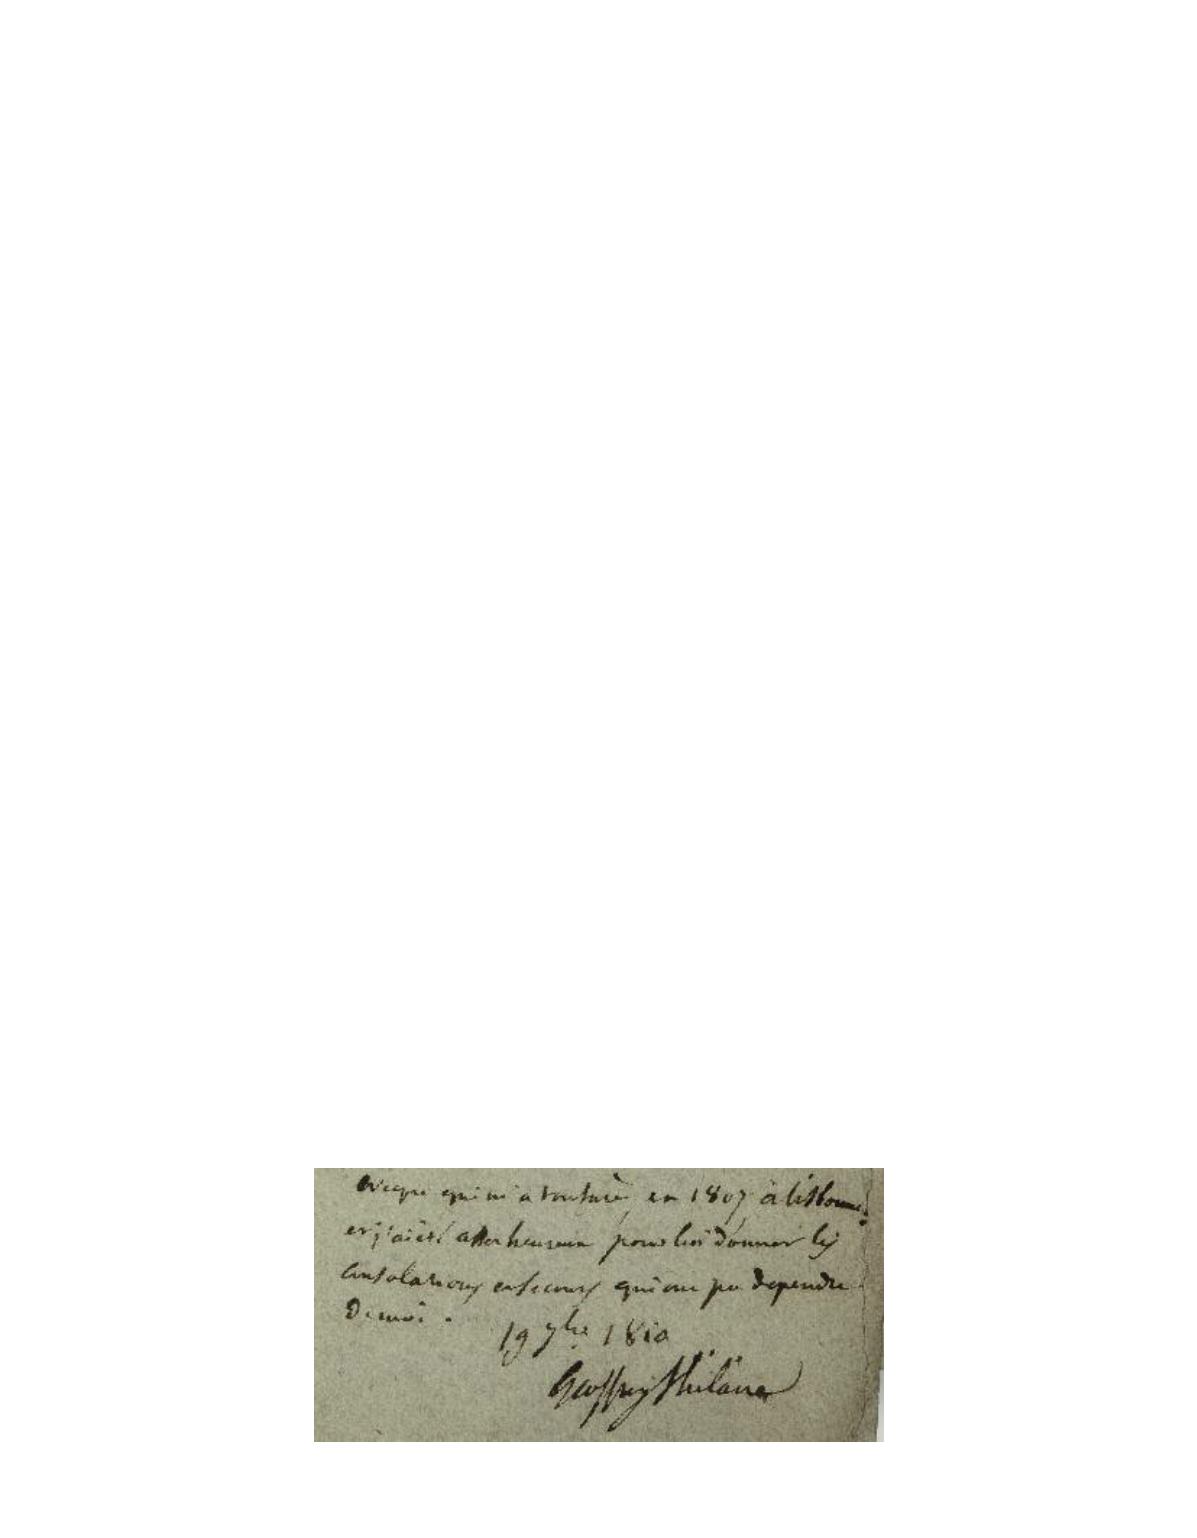 qui m'a           en 1807 à Lisbonne,
et j'ai été assez heureux pour lui donner les
consolations et secours qui ont pu dependre
de moi.
19 7bre 1810
Geoffroy St hilaire